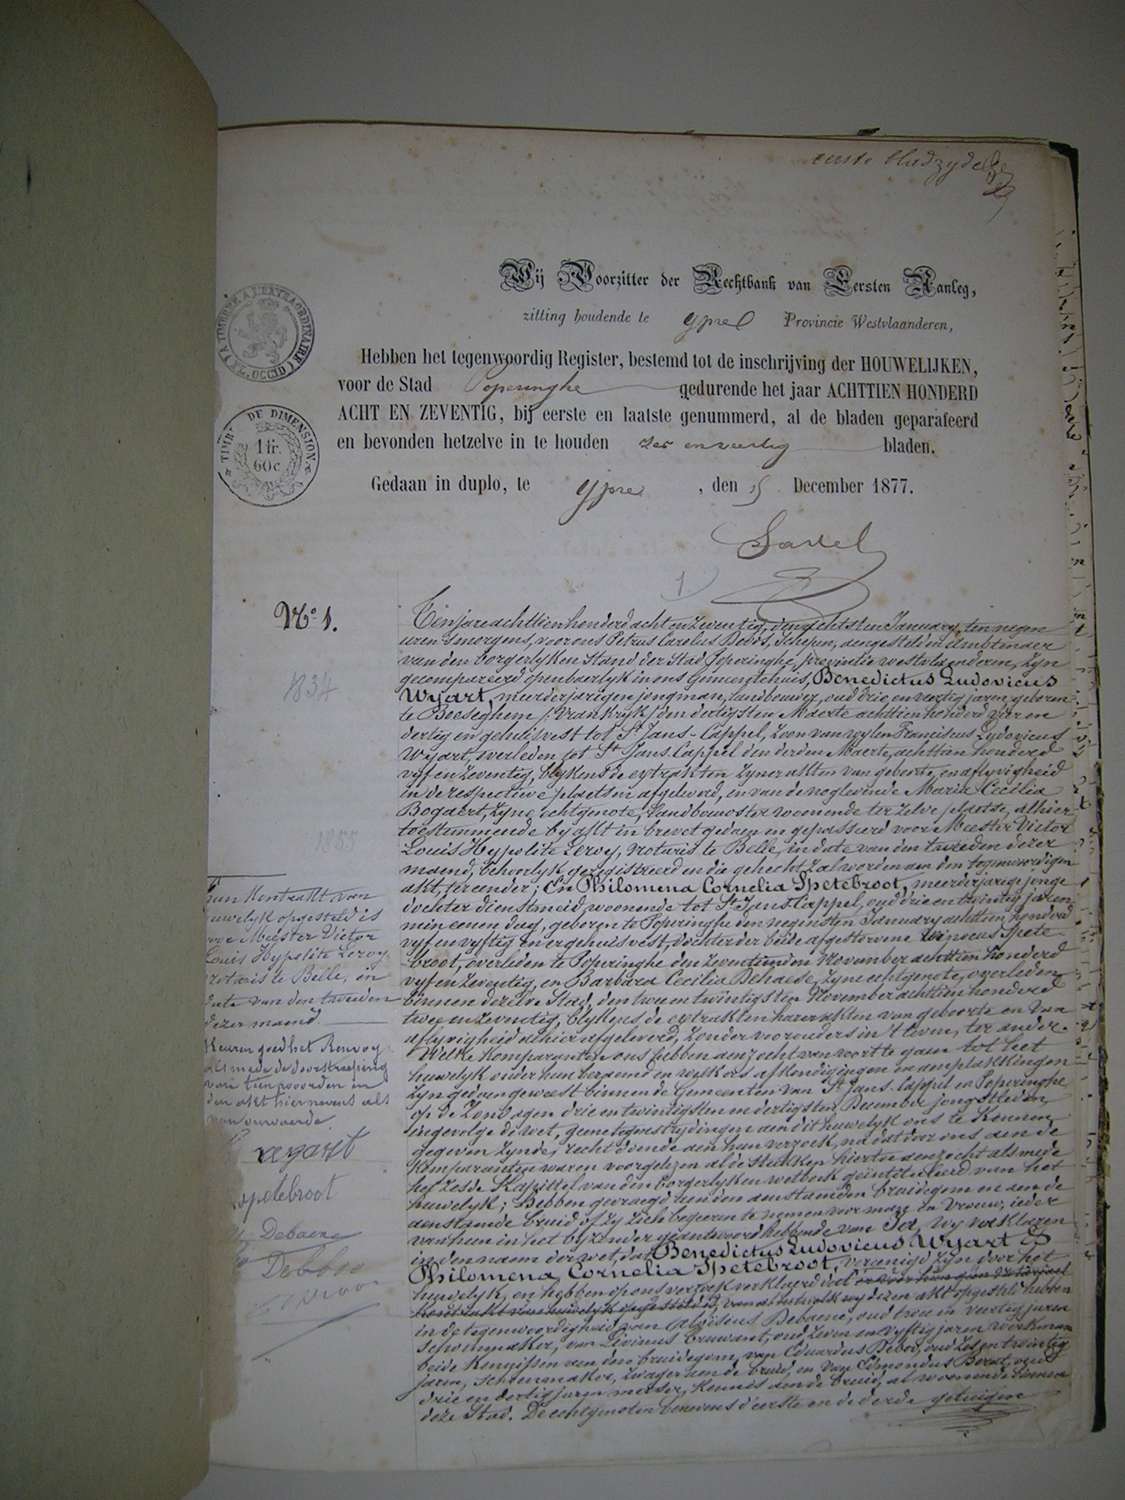 eerste bladzyde
Wij Voorzitter der Rechtbank van Eersten Aanleg,
zitting houdende te Ypre Provincie Westvlaanderen,
Hebben het tegenwoordig Register, bestemd tot de inschrijving der HOUWELIJKEN,
voor de Stad Poperinghe gedurende het jaar ACHTTIEN HONDERD
ACHT EN ZEVENTIG, bij eerste en laatste genummerd, al de bladen geparafeerd
en bevonden hetzelve in te houden zes en veertig bladen.
Gedaan in duplo, te Ypre, den 15 December 1877.
TIMBRE A L'EXTRAORDINAIRE
(FL. OCCID)
TIMB. DE DIMENSION
1 fr.
60 c
1
No. 1.
1834
1855
Ten jare achttien honderd acht en zeventig, den achtsten January, ten negen
uren s'morgens, voor ons Petrus Carolus Debos, Schepen, aengesteld in Ambtenaer
van den borgerlyken Stand der Stad Poperinghe, provintie westvlaenderen, zyn
gecompareerd openbaerlyk in ons Gemeentehuis, Benedictus Ludovicus
Wyart, meerderjarigen jongman, landbouwer, oud drie en veertig jaren, geboren
te Boeseghem (Vrankryk) den dertigsten Maerte achttien honderd vier en
dertig en gehuisvest tot St Jans-Cappel, zoon van wylen Franciscus Ludovicus
Wyart, overleden tot St Jans-Cappel den derden Maerte, achttien honderd
vyf en zeventig, blykens de extrakten zyner akten van geboorte, en aflyvigheid
in de respective plaetsen afgeleverd, en van de nog levende Maria Cecilia
Bogaert, zyne echtgenote, landbouwster woonende ter zelve plaetse, alhier
toestemmende by akt in brevet gedaen en gepasseerd voor Meester Victor
Louis Hypolite Leroy, notaris te Belle, in date van den tweeden dezer
maend, behoorlyk geregistreerd en die gehecht zal worden aen den tegenwoordigen
akt, ter eender; En Philomena Cornelia Spetebroot, meerderjarige jonge
dochter dienstmeid, woonende tot St Jans Cappel, oud drie en twintig jaren
min eenen dag, geboren te Poperinghe den negensten January achttien honderd
vyf en vyftig en er gehuisvest, dochter der beide afgestorvene Spete
broot, overleden te Poperinghe den zeventienden November achttien honderd
vyf en zeventig, en Barbara Cecilia Dehaese, zyne echtgenote, overleden
binnen dezelve Stad, den twee en twintigsten November achttien honderd
twee en zeventig, blykens de extrakten harer akten van geboorte en van
aflyvigheid alhier afgeleverd, zonder voorouders in 't leven, ter ander.
Welke komparanten ons hebben aenzocht van voort te gaen tot het
huwelyk onder hun beraemd en welkers afkondigingen en aenplakkingen
zyn gedaen geweest binnen de Gemeenten van St Jans Cappel en Poperinghe
op de Zondagen drie en twintigsten en dertigsten December jongstleden
ingevolge de wet, geene tegenstrydingen aen dit huwelyk ons te kennen
gegeven zynde, recht doende aen hun verzoek, na dat door ons aen de
komparanten waren voorgelezen al de stukken hiertoe aenzocht alsmede
het zesde Kapittel van den borgerlyken wetboek geintituleerd van het
huwelyk; Hebben gevraegd aen den aenstaenden bruidegom en aen de
aenstaende bruid of zy zich begeeren te nemen voor man en Vrouw, ieder
van hun in het byzonder geantwoord hebbende van Ja, wy verklaren
in den naem der wet, dat Benedictus Ludovicus Wyart en
Philomena Cornelia Spetebroot, vereenigd zyn door het
huwelyk, en hebben op ons verzoek verklaerd dat
van al hetwelk wy dezen akt opgesteld hebben
in de tegenwoordigheid van Aloisius Debaene, oud twee en veertig jaren
schoenmaker, van Livinus Cruwant, oud zeven en vyftig jaren werkman
beide kennissen aen den bruidegom, van Eduardus Debos, oud zes en twintig
jaren, schoenmaker, zwager aen de bruid, en van Edmondus Berat, oud
drie en dertig jaren metser, kennis aen de bruid, al woonende binnen
deze Stad. De echtgenoten benevens d'eerste en de derde getuigen
een Kontrakt van
huwelyk opgesteld is
voor Meester Victor
Louis Hypolite Leroy
notaris te Belle, in
date van den tweeden
dezer maend.
Keuren goed het Renvoy
alsmede de doorstreeping
van tien woorden in
den akt hiernevens als
van onwaerde.
Spetebroot
Debaene
Debos